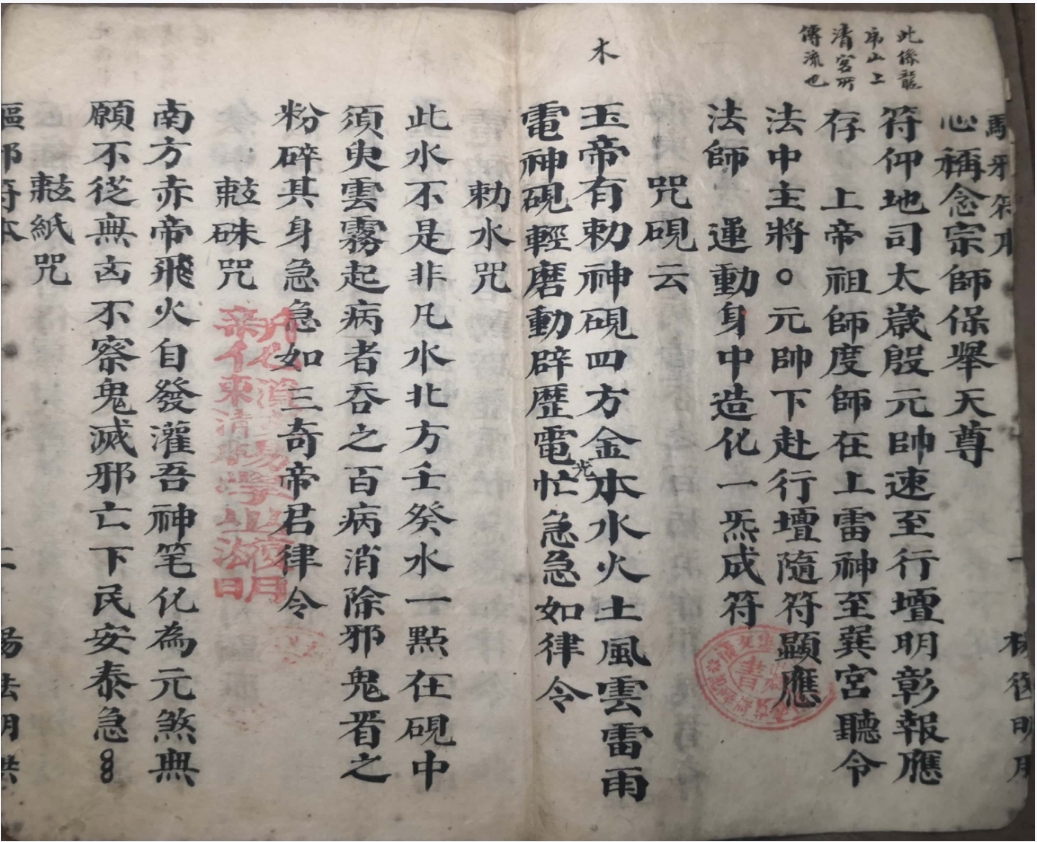 此係龍
虎山上
清宮所
傳流也
心稱念宗師保舉天尊
符仰地司太歲殷元帥速至行壇明彰報應
存 上帝祖師度師在上雷神至巽宮聽令
法中主將○元帥下赴行壇隨符顯應
法師 運動身中造化一炁成符
咒硯云
木
玉帝有勅神硯四方金木水火土風雲雷雨
電神硯輕磨動辟歷電光忙急急如律令
勅水咒
此水不是非凡水北方壬癸水一點在硯中
須臾雲霧起病者吞之百病消除邪鬼㫺之
粉碎其身急急如三奇帝君律令
敕硃咒
南方赤帝飛火自發灌吾神笔化為元煞無
願不從無凶不察鬼滅邪亡下民安泰急
敕紙咒